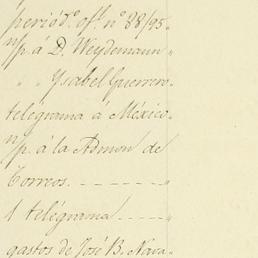 periód.º of.l nº 88/95.
n/p. á D. Weydemann
" " Ysabel Guerrero
telégrama á México
n/p. á la Admon de
Correos. - - - - - -
1 telégrama - - - -
gastos de José B. Nava-